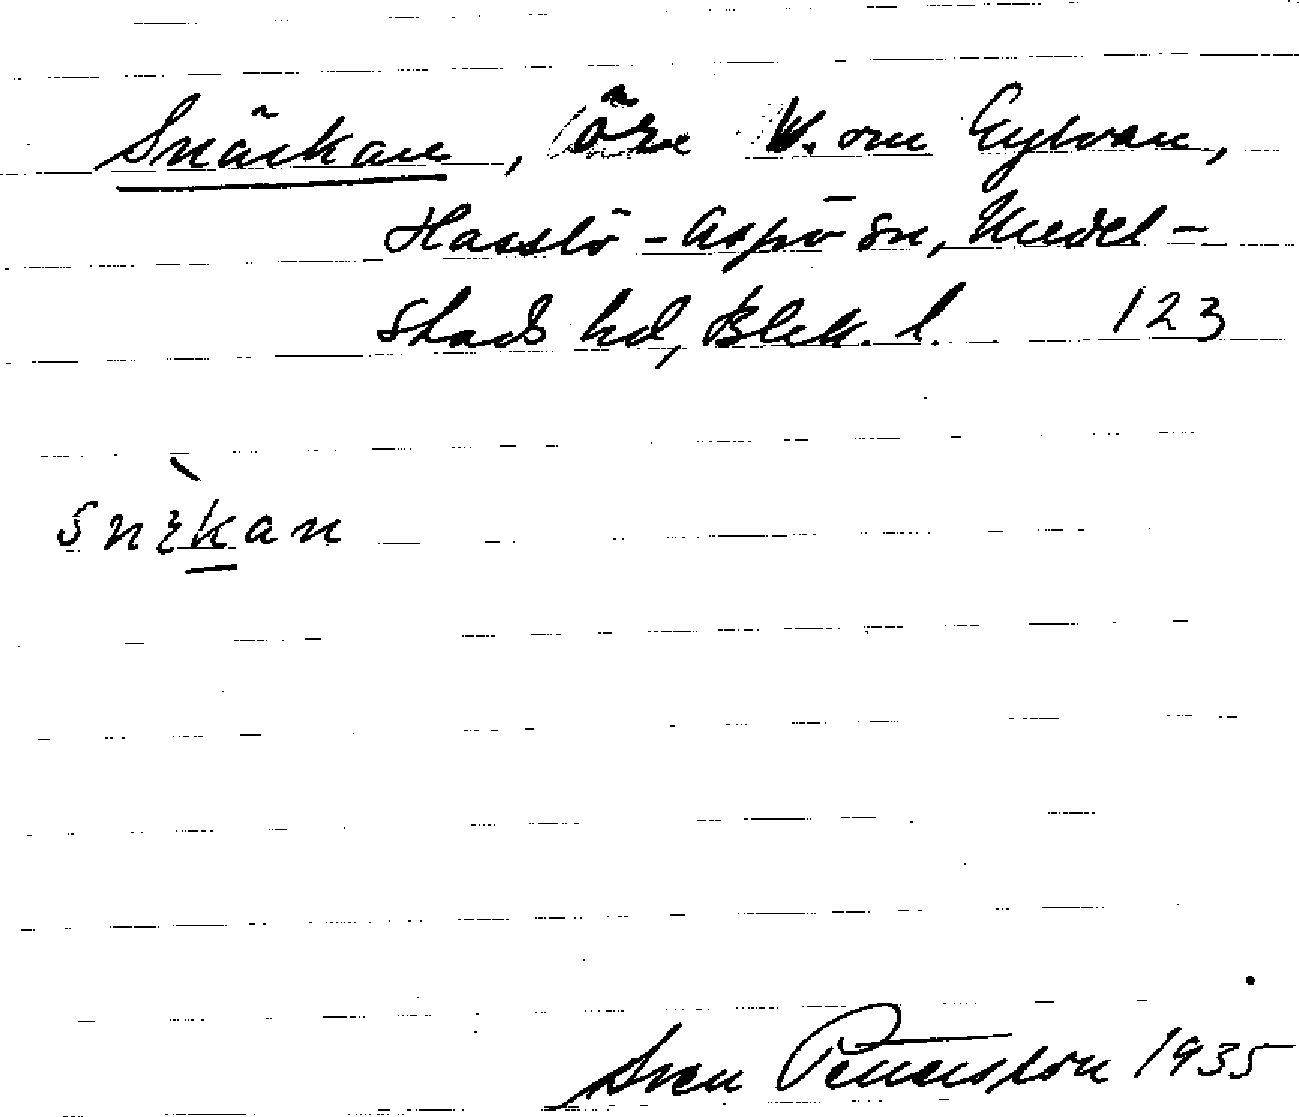 Snäckan, öre V. om Gylvan,
Hasslö-Aspö sn, Medel-
stads hd, Blek. l. 123
Snɛ̀kan
Sven Pettersson 1935